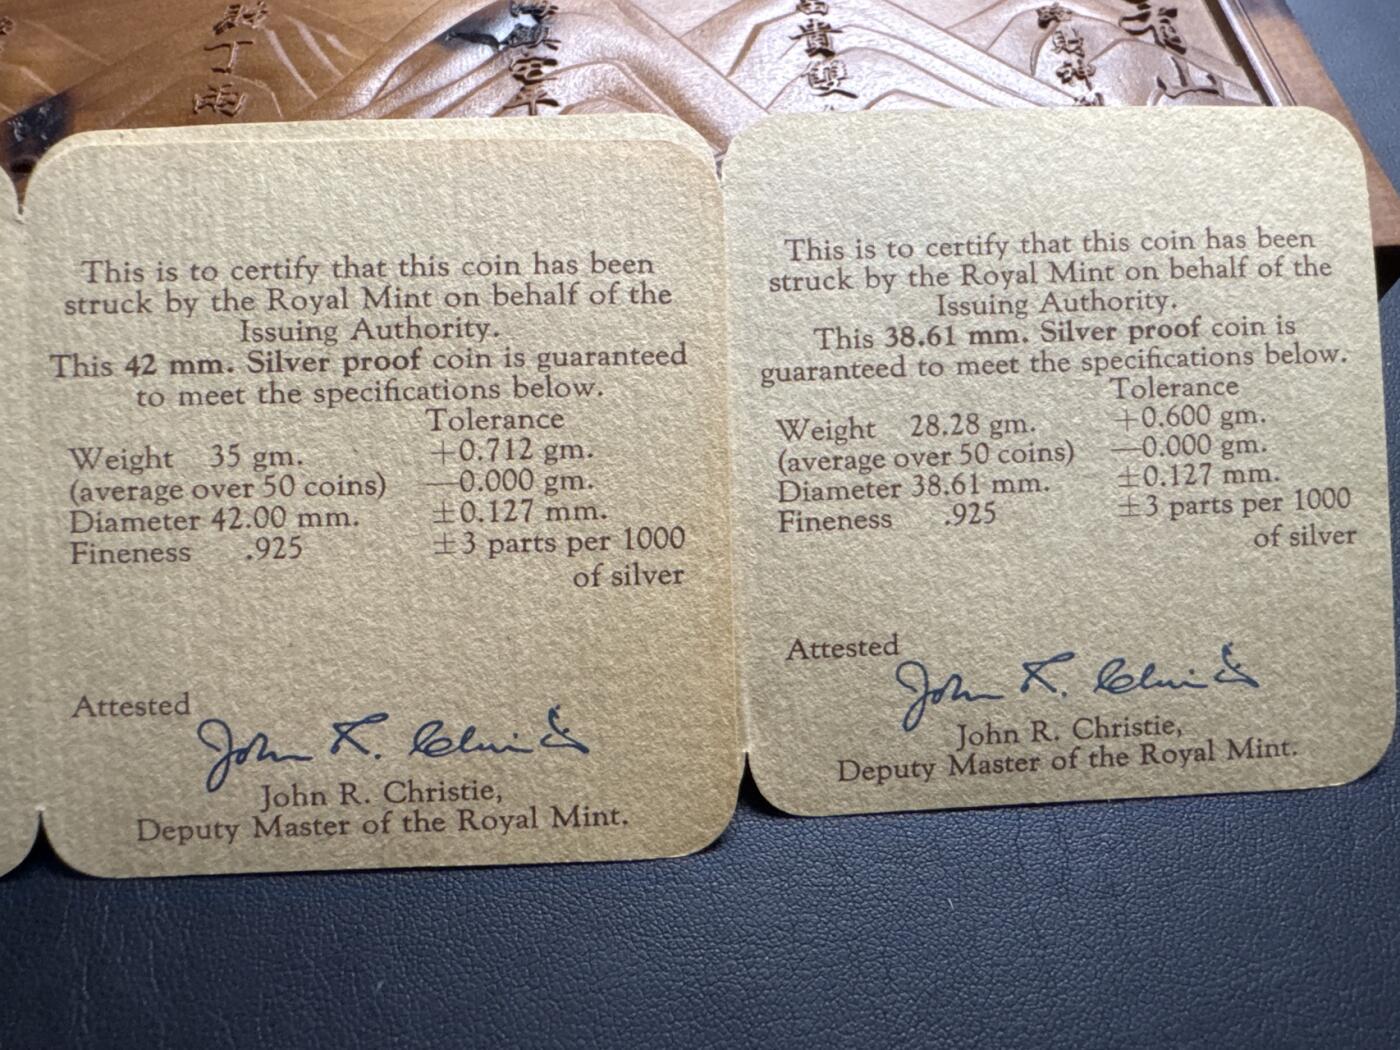 丁
空
年
貴
雙
財
神
山
This is to certify that this coin has been
struck by the Royal Mint on behalf of the
Issuing Authority.
This 42 mm. Silver proof coin is guaranteed
to meet the specifications below.
Tolerance
Weight 35 gm. +0.712 gm.
(average over 50 coins) —0.000 gm.
Diameter 42.00 mm. ±0.127 mm.
Fineness .925 ±3 parts per 1000
of silver
Attested
John R. Christie
John R. Christie,
Deputy Master of the Royal Mint.
This is to certify that this coin has been
struck by the Royal Mint on behalf of the
Issuing Authority.
This 38.61 mm. Silver proof coin is
guaranteed to meet the specifications below.
Tolerance
Weight 28.28 gm. +0.600 gm.
(average over 50 coins) —0.000 gm.
Diameter 38.61 mm. ±0.127 mm.
Fineness .925 ±3 parts per 1000
of silver
Attested
John R. Christie
John R. Christie,
Deputy Master of the Royal Mint.